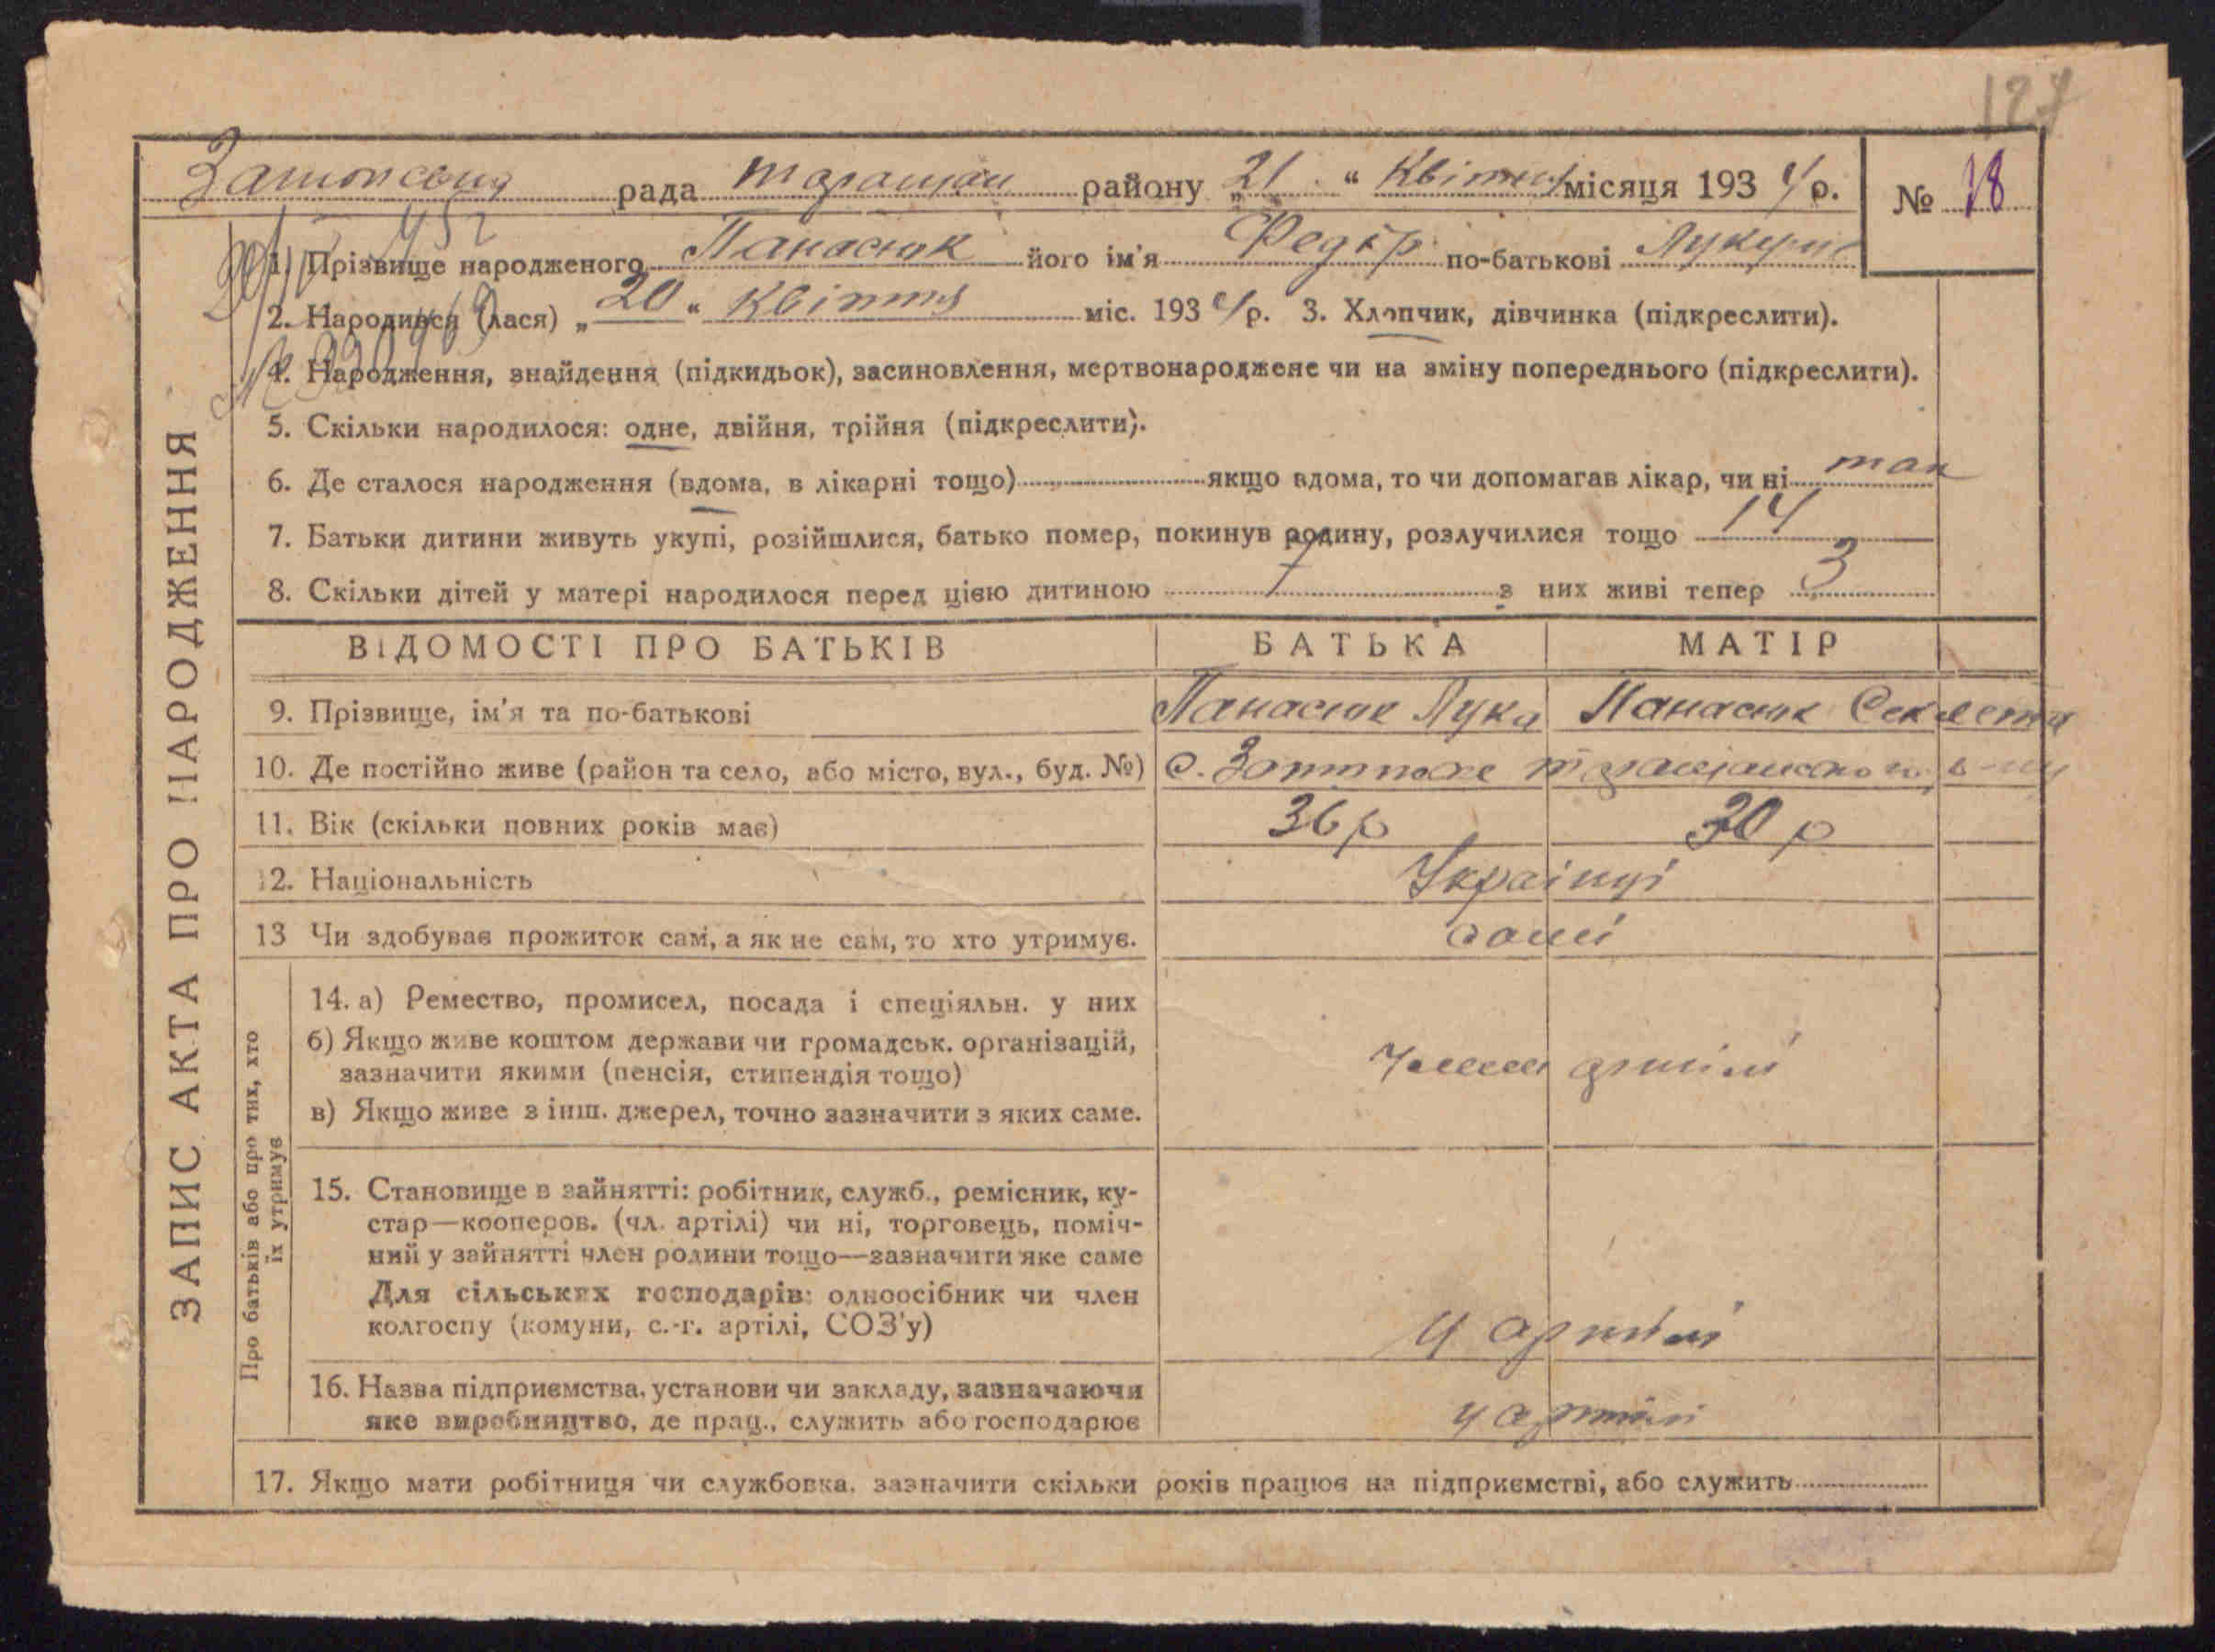 127
рада району „21“ Квітня місяця 1934 р. № 18
1. Прізвище народженого Панасюк його ім'я Федір по-батькові
2. Народився (лася) „20“ Квітня міс. 1934 р. 3. Хлопчик, дівчинка (підкреслити).
4. Народження, знайдення (підкидьок), засиновлення, мертвонароджене чи на зміну попереднього (підкреслити).
5. Скільки народилося: одне, двійня, трійня (підкреслити).
6. Де сталося народження (вдома, в лікарні тощо) якщо вдома, то чи допомагав лікар, чи ні так
7. Батьки дитини живуть укупі, розійшлися, батько помер, покинув родину, розлучилися тощо 14
8. Скільки дітей у матері народилося перед цією дитиною 7 з них живі тепер 3
ЗАПИС АКТА ПРО НАРОДЖЕННЯ
ВІДОМОСТІ ПРО БАТЬКІВ БАТЬКА МАТІР
9. Прізвище, ім'я та по-батькові Панасюк Лука Панасюк Секлета
10. Де постійно живе (район та село, або місто, вул., буд. №) с.
11. Вік (скільки повних років має) 36 р 30 р
12. Національність Українці
13 Чи здобуває прожиток сам, а як не сам, то хто утримує. самі
Про батьків або про тих, хто
їх утримує
14. а) Ремество, промисел, посада і спеціяльн. у них
б) Якщо живе коштом держави чи громадськ. організацій,
зазначити якими (пенсія, стипендія тощо)
в) Якщо живе з інш. джерел, точно зазначити з яких саме.
Члени артілі
15. Становище в зайнятті: робітник, служб., ремісник, ку-
стар—кооперов. (чл. артілі) чи ні, торговець, поміч-
ний у зайнятті член родини тощо—зазначити яке саме
Для сільських господарів: одноосібник чи член
колгоспу (комуни, с.-г. артілі, СОЗ'у)
У артілі
16. Назва підприємства, установи чи закладу, зазначаючи
яке виробництво, де прац., служить або господарює
у артілі
17. Якщо мати робітниця чи службовка, зазначити скільки років працює на підприємстві, або служить